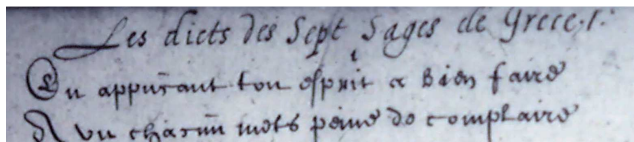 Les dicts des Sept Sages de Grece. 1.
En appuiant ton esprit a bien faire
A un chacun mets peine de complaire